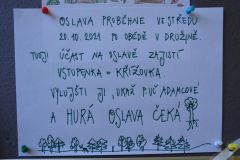 OSLAVA PROBĚHNE VE STŘEDU
20.10.2021 PO OBĚDĚ V DRUŽINĚ.
TVOJI ÚČAST NA OSLAVĚ ZAJISTÍ
VSTUPENKA = KŘÍŽOVKA.
VYLUŠTI JI, UKAŽ P. UČ. ADAMCOVÉ
A HURÁ OSLAVA ČEKÁ